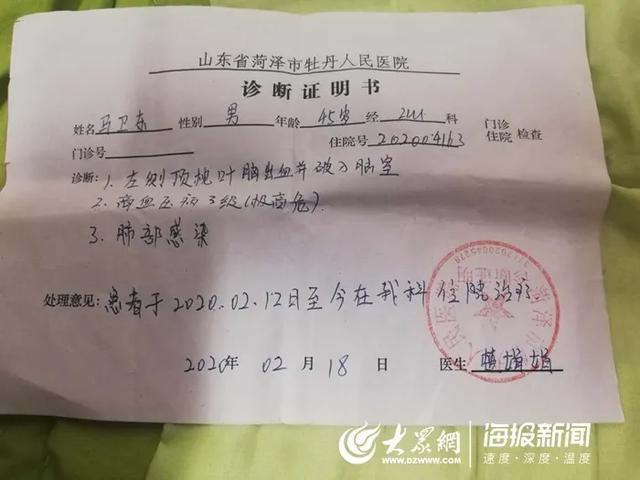 山东省菏泽市牡丹人民医院
诊断证明书
姓名 马卫东 性别 男 年龄 45岁 经 科 门诊
门诊号 住院号 202004163 住院 检查
诊断：1. 左侧顶枕叶脑出血并破入脑室
2. 高血压病3级（极高危）.
3. 肺部感染
处理意见：患者于2020.02.12日至今在我科住院治疗
2020年 02 月 18 日 医生 娟娟
诊断证明
大众網 海报新闻
www.dzwww.com 速度·深度·温度